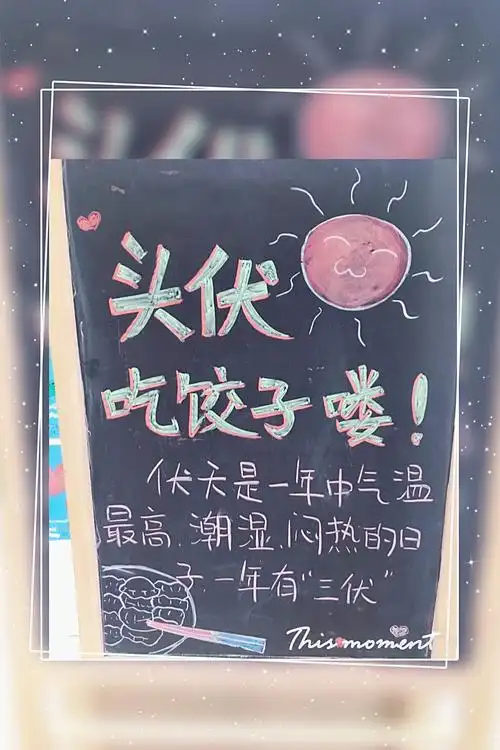 头伏
吃饺子喽！
伏天是一年中气温
最高、潮湿、闷热的日
子.一年有"三伏"
This moment